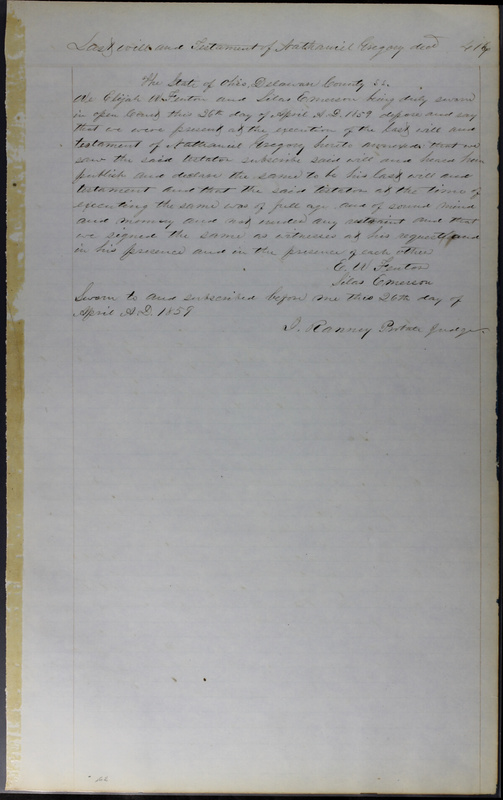 Last will and Testament of Nathaniel Gregory decd
The State of Ohio, Delaware County SS.
We Elijah W. Fenton and Silas Emerson being duly sworn
in open Court this 26th day of April A.D. 1859 depose and say
that we were present at the execution of the last will and
testament of Nathaniel Gregory hereto annexed that we
saw the said testator subscribe said will and heard him
publish and declare the same to be his last will and
testament and that the said testator at the time of
executing the same was of full age and of sound mind
and memory and not under any restraint and that
we signed the same as witnesses at his request and
in his presence and in the presence of each other
E. W. Fenton
Silas Emerson
Sworn to and subscribed before me this 26th day of
April A.D. 1859
Ranney Probate Judge